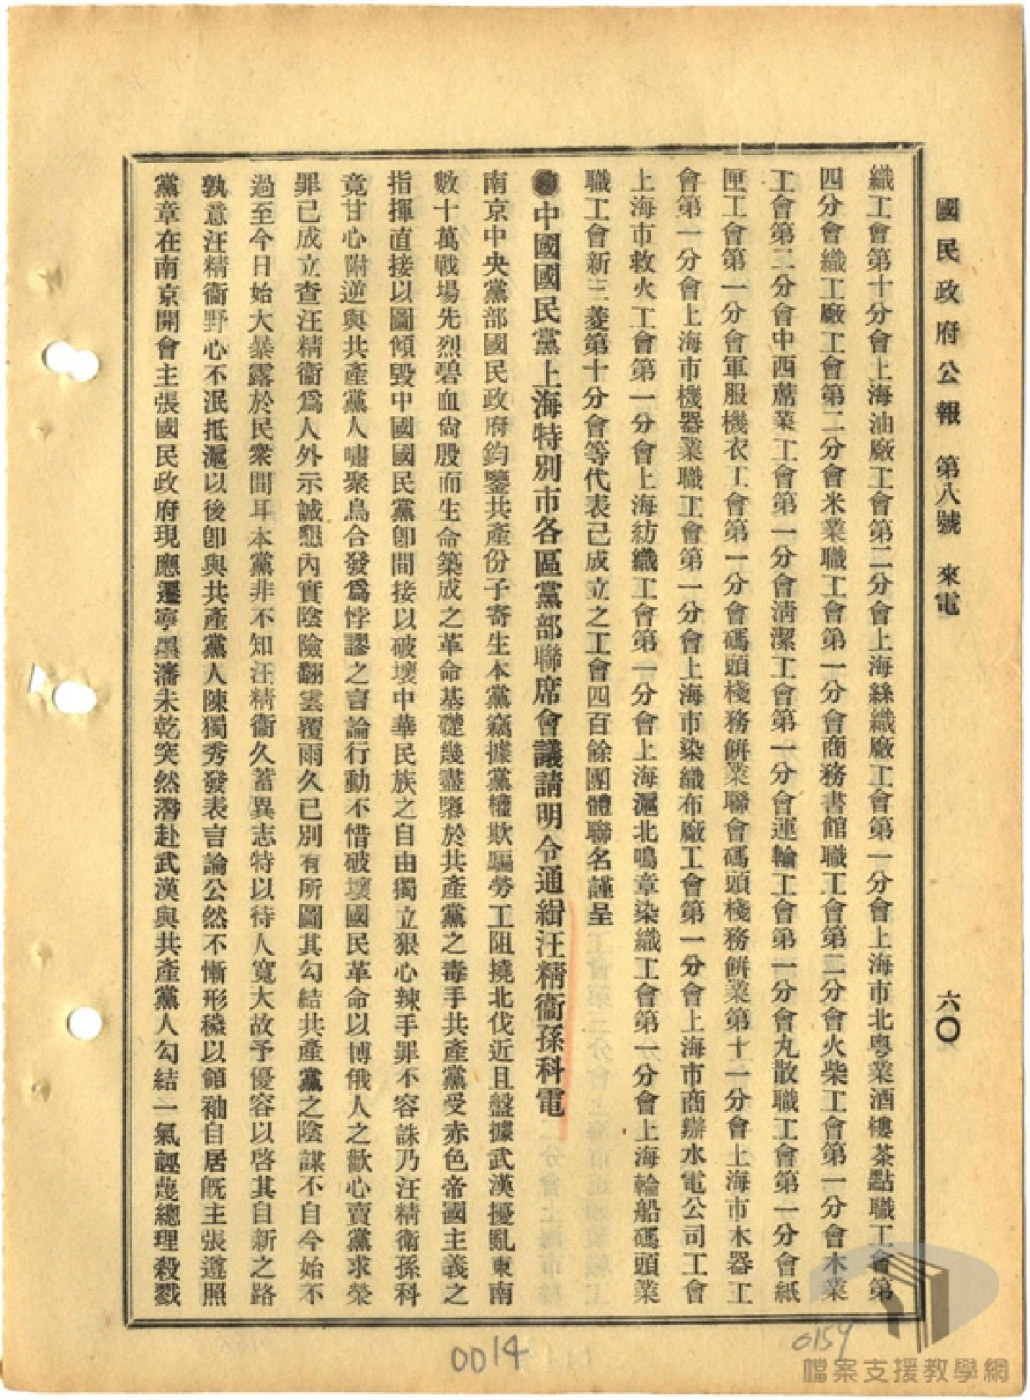 國民政府公報　第八號　來電　六〇
織工會第十分會上海油廠工會第二分會上海絲織廠工會第一分會上海市北粵業酒樓茶點職工會第
四分會織工廠工會第二分會米業職工會第一分會商務書館職工會第二分會火柴工會第一分會木業
工會第二分會中西蓆業工會第一分會清潔工會第一分會運輸工會第一分會丸散職工會第一分會紙
匣工會第一分會軍服機衣工會第一分會碼頭棧務餅業聯會碼頭棧務餅業第十一分會上海市木器工
會第一分會上海市機器業職工會第一分會上海市染織布廠工會第一分會上海市商辦水電公司工會
上海市救火工會第一分會上海紡織工會第一分會上海滬北鳴章染織工會第一分會上海輪船碼頭業
職工會新三菱第十分會等代表已成立之工會四百餘團體聯名謹呈
●中國國民黨上海特別市各區黨部聯席會議請明令通緝汪精衞孫科電
南京中央黨部國民政府鈞鑒共產份子寄生本黨竊據黨權欺騙勞工阻撓北伐近且盤據武漢擾亂東南
數十萬戰場先烈碧血尙殷而生命築成之革命基礎幾盡墮於共產黨之毒手共產黨受赤色帝國主義之
指揮直接以圖傾毀中國國民黨卽間接以破壞中華民族之自由獨立狠心辣手罪不容誅乃汪精衞孫科
竟甘心附逆與共產黨人嘯聚烏合發爲悖謬之言論行動不惜破壞國民革命以博俄人之歡心賣黨求榮
罪已成立查汪精衞爲人外示誠懇內實陰險翻雲覆雨久已別有所圖其勾結共產黨之陰謀不自今始不
過至今日始大暴露於民衆間耳本黨非不知汪精衞久蓄異志特以待人寬大故予優容以啓其自新之路
孰意汪精衞野心不泯抵滬以後卽與共產黨人陳獨秀發表言論公然不慚形穢以領袖自居旣主張遵照
黨章在南京開會主張國民政府現應遷寧墨瀋未乾突然潛赴武漢與共產黨人勾結一氣誣蔑總理殺戮
0014
0154
檔案支援教學網